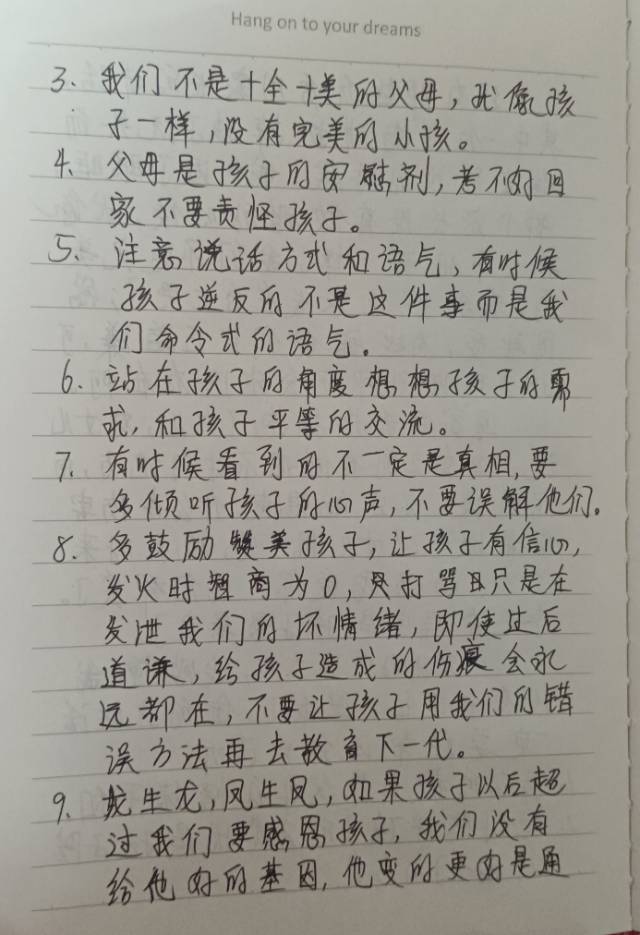 Hang on to your dreams
3. 我们不是十全十美的父母，就像孩
子一样，没有完美的小孩。
4. 父母是孩子的安慰剂，考不好回
家不要责怪孩子。
5. 注意说话方式和语气，有时候
孩子逆反的不是这件事而是我
们命令式的语气。
6. 站在孩子的角度想想孩子的需
求，和孩子平等的交流。
7. 有时候看到的不一定是真相，要
多倾听孩子的心声，不要误解他们。
8. 多鼓励赞美孩子，让孩子有信心，
发火时智商为0，打骂只是在
发泄我们的坏情绪，即使过后
道谦，给孩子造成的伤痕会永
远都在，不要让孩子用我们的错
误方法再去教育下一代。
9. 龙生龙，凤生凤，如果孩子以后超
过我们要感恩孩子，我们没有
给他好的基因，他变的更好是通